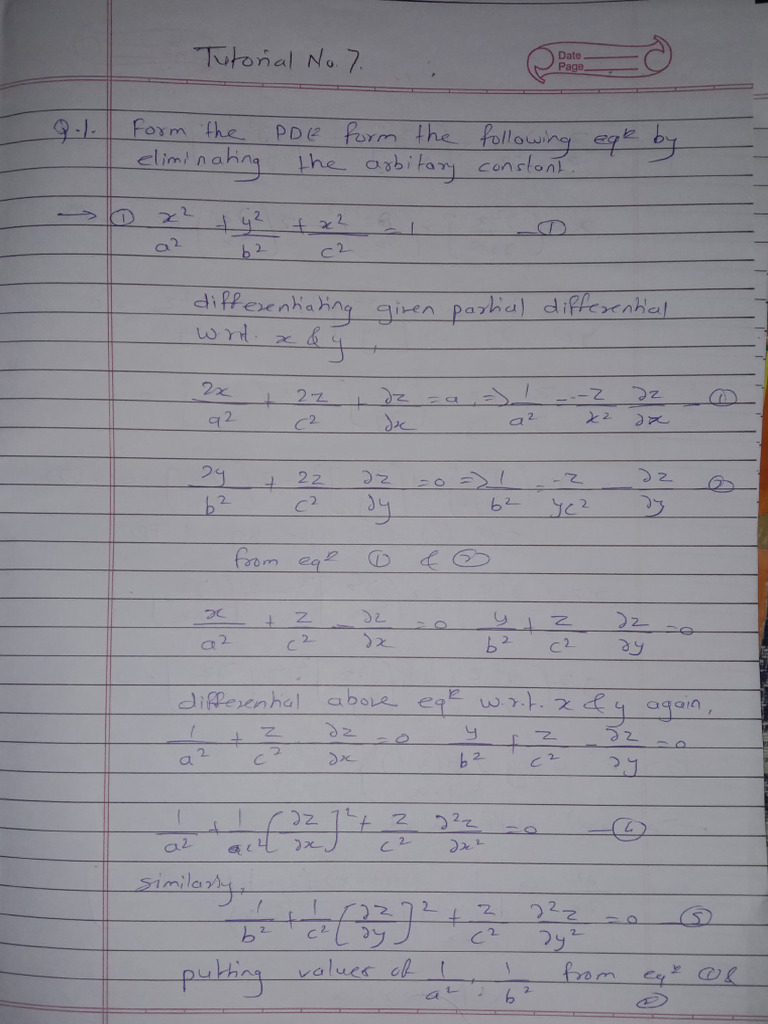 Tutorial No. 7.
Date
Page
Q.1. Form the PDE form the following eqⁿ by
eliminating the arbitary constant.
→ ① x²/a² + y²/b² + x²/c² = 1 —①
differentiating given partial differential
w.r.t. x & y,
2x/a² + 2z/c² + ∂z/∂x = a, => 1/a² = -z/x² ∂z/∂x —①
2y/b² + 2z/c² ∂z/∂y = 0 => 1/b² = -z/yc² — ∂z/∂y ②
from eqⁿ ① & ②
x/a² + z/c² - ∂z/∂x = 0 y/b² + z/c² ∂z/∂y = 0
differential above eqⁿ w.r.t. x & y again,
1/a² + z/c² ∂z/∂x = 0 y/b² + z/c² - ∂z/∂y = 0
1/a² + 1/c² [∂z/∂x]² + z/c² ∂²z/∂x² = 0 —④
similarly,
1/b² + 1/c² [∂z/∂y]² + z/c² ∂²z/∂y² = 0 ⑤
putting values of 1/a², 1/b² from eqⁿ ① &
②